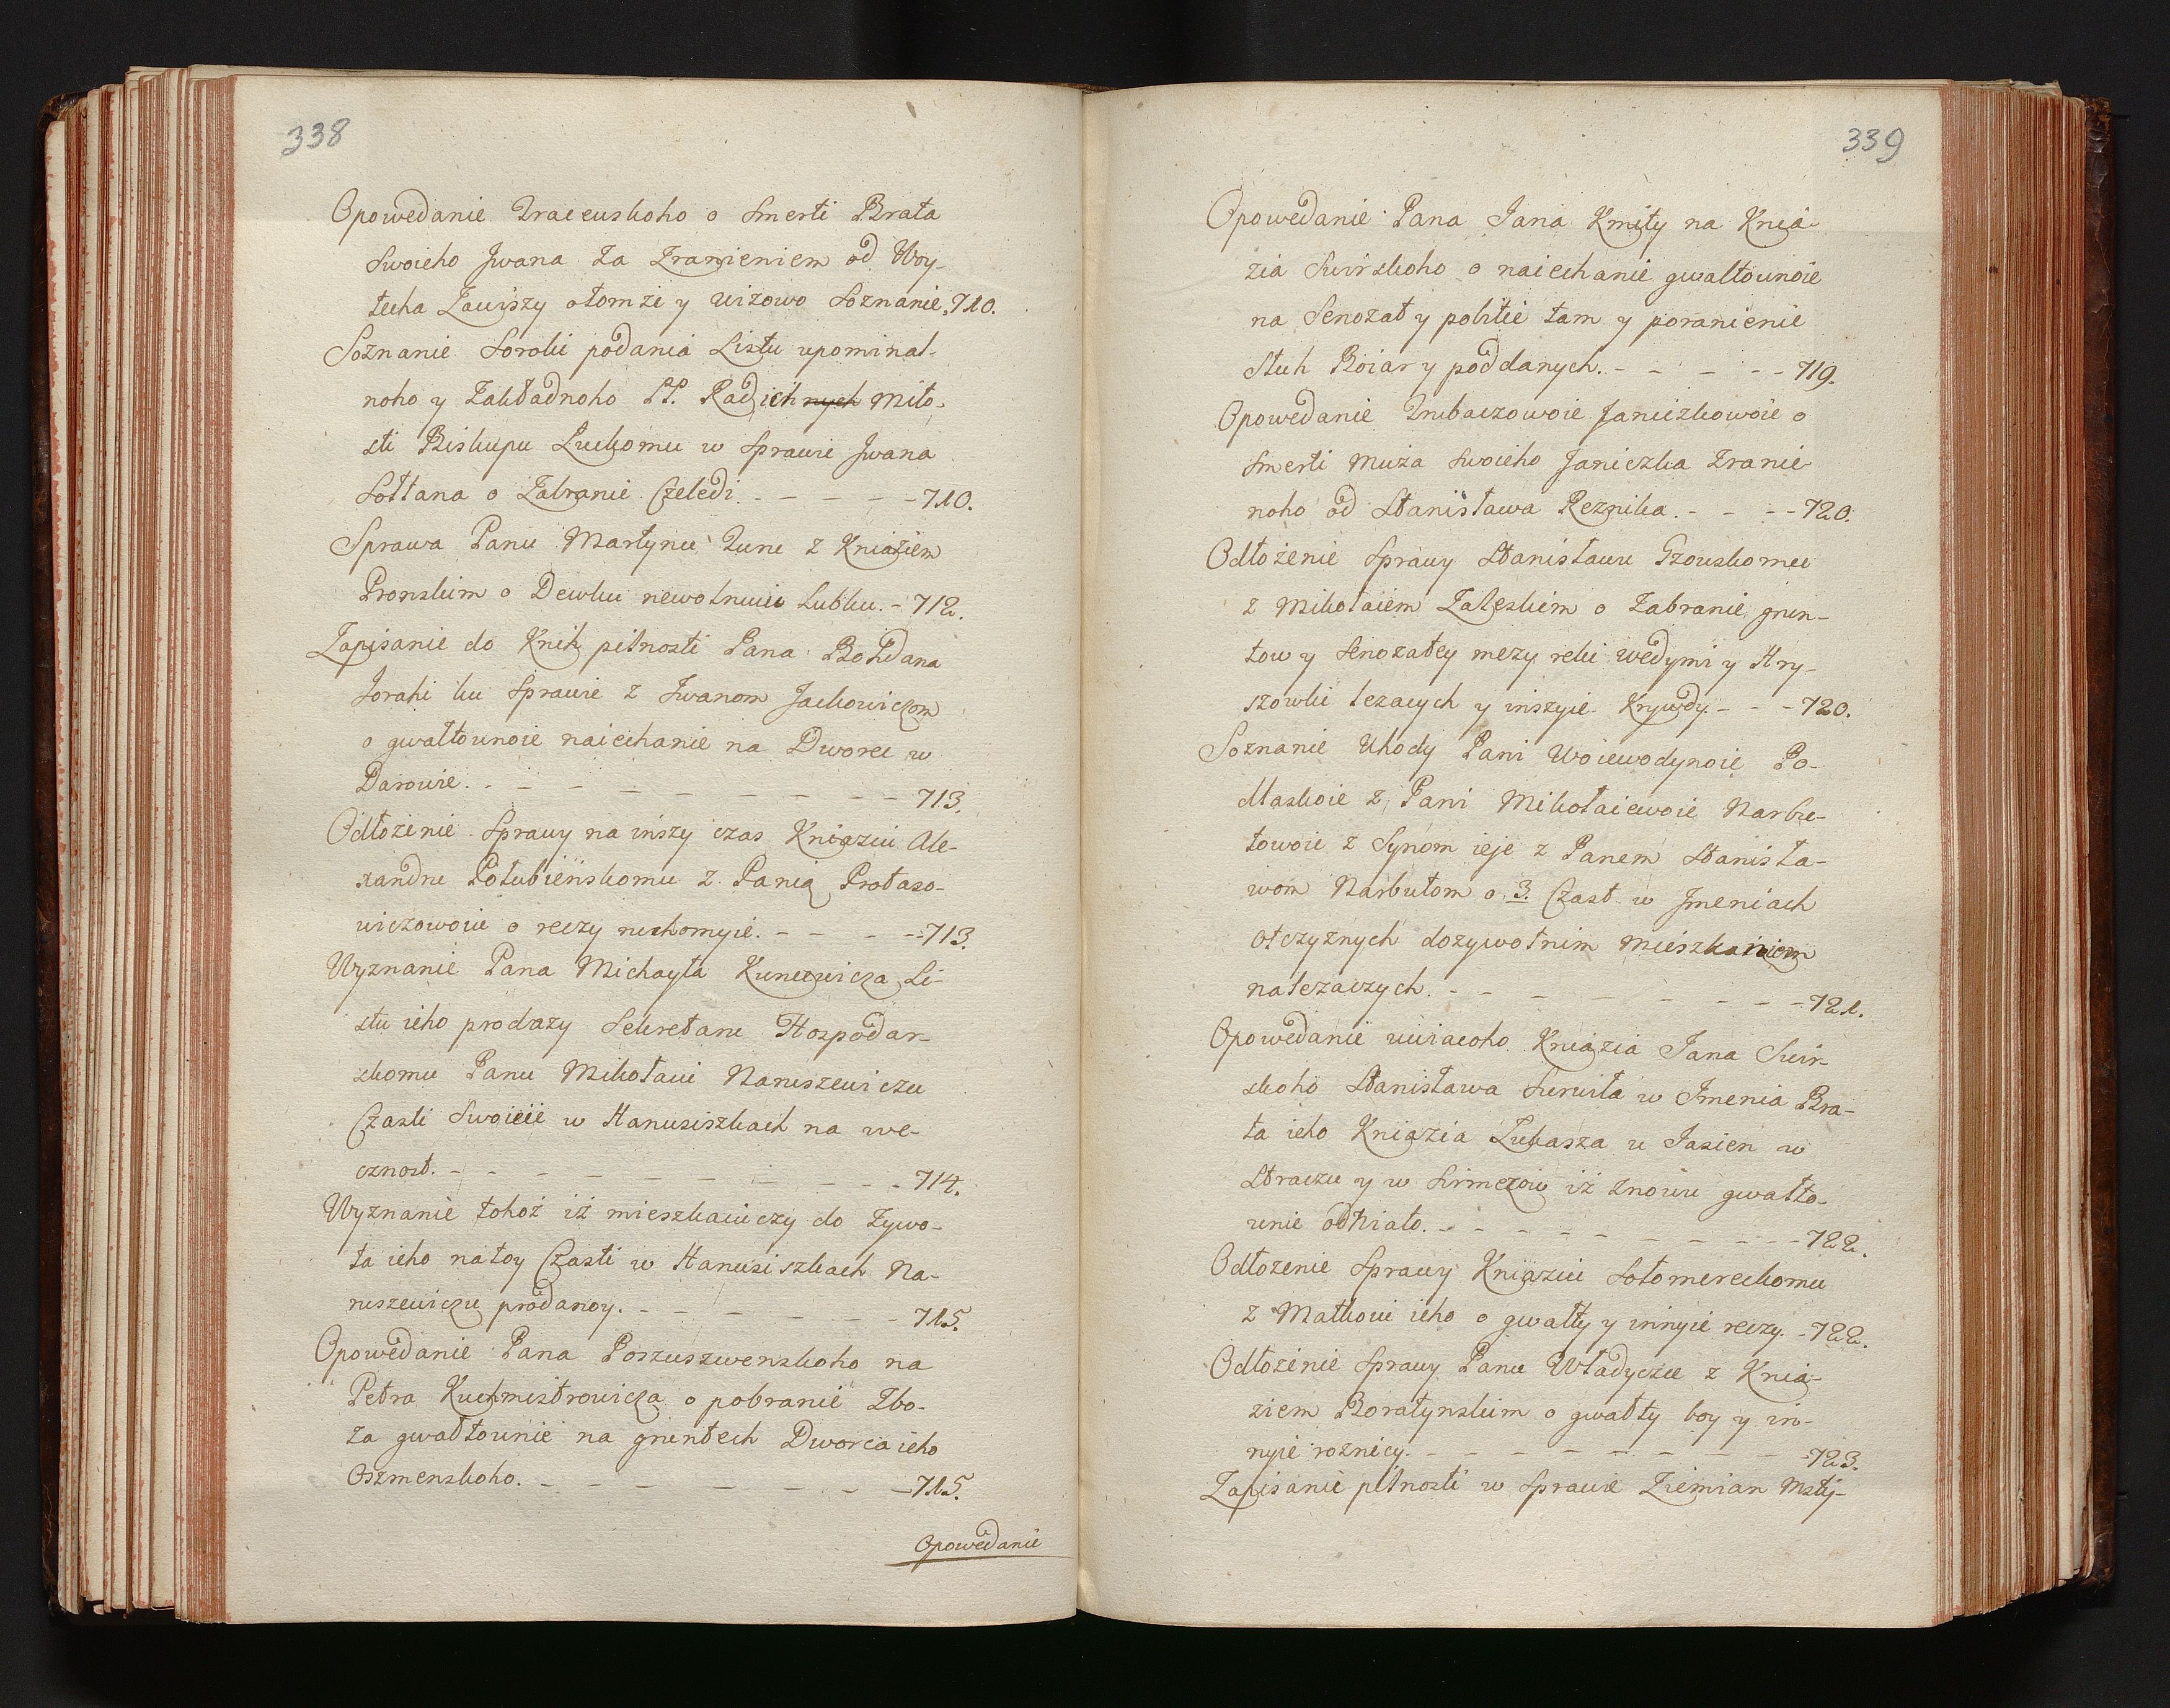 338
Opowedanie Traceuskoho o Smerti Brata
Swoieho Jwana za zranieniem od Woy-
techa Zawiszy otomże y wizowo Soznanie. 710.
Soznanie Soroki podania Listu upominal-
noho y Zakładnoho PP. Rad ich nych Miło-
sti Biskupu Luckomu w Sprawie Jwana
Sołtana o Zabranie Czeledi. - - - - - 710.
Sprawa Panu Martynu Tune z Kniaziem
Pronskim o Dewku newolnuiu Lubku. - 712.
Zapisanie do Knih pilnosti Pana Bohdana
Sorahi ku Sprawie z Jwanom Jackowiczom
o gwałtounoie naiechanie na Dworec w
Darowie. - - - - - - - - - 713.
Odłożenie Sprawy na inszy czas Kniaziu Ale-
xandru Połubienskomu z Panią Protaso-
wiczowoiu o reczy ruchomyie. - - - - 713.
Wyznanie Pana Michayła Kuncewicza Li-
stu ieho prodazy Sekretaru Hospodar-
skomu Panu Mikołaiu Naruszewiczu
Czasti Swoieie w Hanusiszkach na we-
cznost. - - - - - - - - - 714.
Wyznanie tohoż iż mieszkaiuczy do Żywo-
ta ieho natoy Czasti w Hanusiszkach Na-
ruszewiczu prodanoy. - - - - - 715.
Opowedanie Pana Poszuszwenskoho na
Petra Kuchmistrowicza o pobranie Zbo-
ża gwałtounie na gruntech Dworca ieho
Oszmenskoho. - - - - - - - - 715.
Opowedanie
339
Opowedanie Pana Jana Kmity na Knia-
zia Swirskoho o naiechanie gwałtounoie
na Senożat y pobitie tam y poranienie
Słuh Boiar y poddanych. - - - - - 719.
Opowedanie Trubaczowoie Janiczkowoie o
Smerti Muża Swoieho Janiczka Zranie-
noho od Stanisława Reznika. - - - - 720.
Odłożenie Sprawy Stanisławu Gzouskomu
z Mikołaiem Zaleskim o Zabranie grun-
tow y Senozatey mezy reki wedymi y Hry-
szowki lezacych y inszyie Krywdy. - - - 720.
Soznanie Uhody Pani Woiewodynoie Po-
dlaskoie z Pani Mikołaiewoie Narbu-
towoie z Synom ieje z Panem Stanisła-
wom Narbutom o 3. Czast w Jmeniach
otczyznych dozywotnim mieszkaniem
należaczych. - - - - - - - - - 721.
Opowedanie uwiacoho Kniazia Jana Swir-
skoho Stanisława Surwiła w Jmenia Bra-
ta ieho Kniazia Łukasza u Jasien w
Straczu y w Sirmezow iż znowu gwałto-
unie odniato. - - - - - - - - - 722.
Odłożenie Sprawy Kniaziu Sołomereckomu
z Matkoiu ieho o gwałty y innyie reczy. - 722.
Odłożenie Sprawy Panu Władyczce z Knia-
ziem Boratynskim o gwałty boy y in-
nyie roznicy. - - - - - - - - - 723.
Zapisanie pilnosti w Sprawie Ziemian Msty-